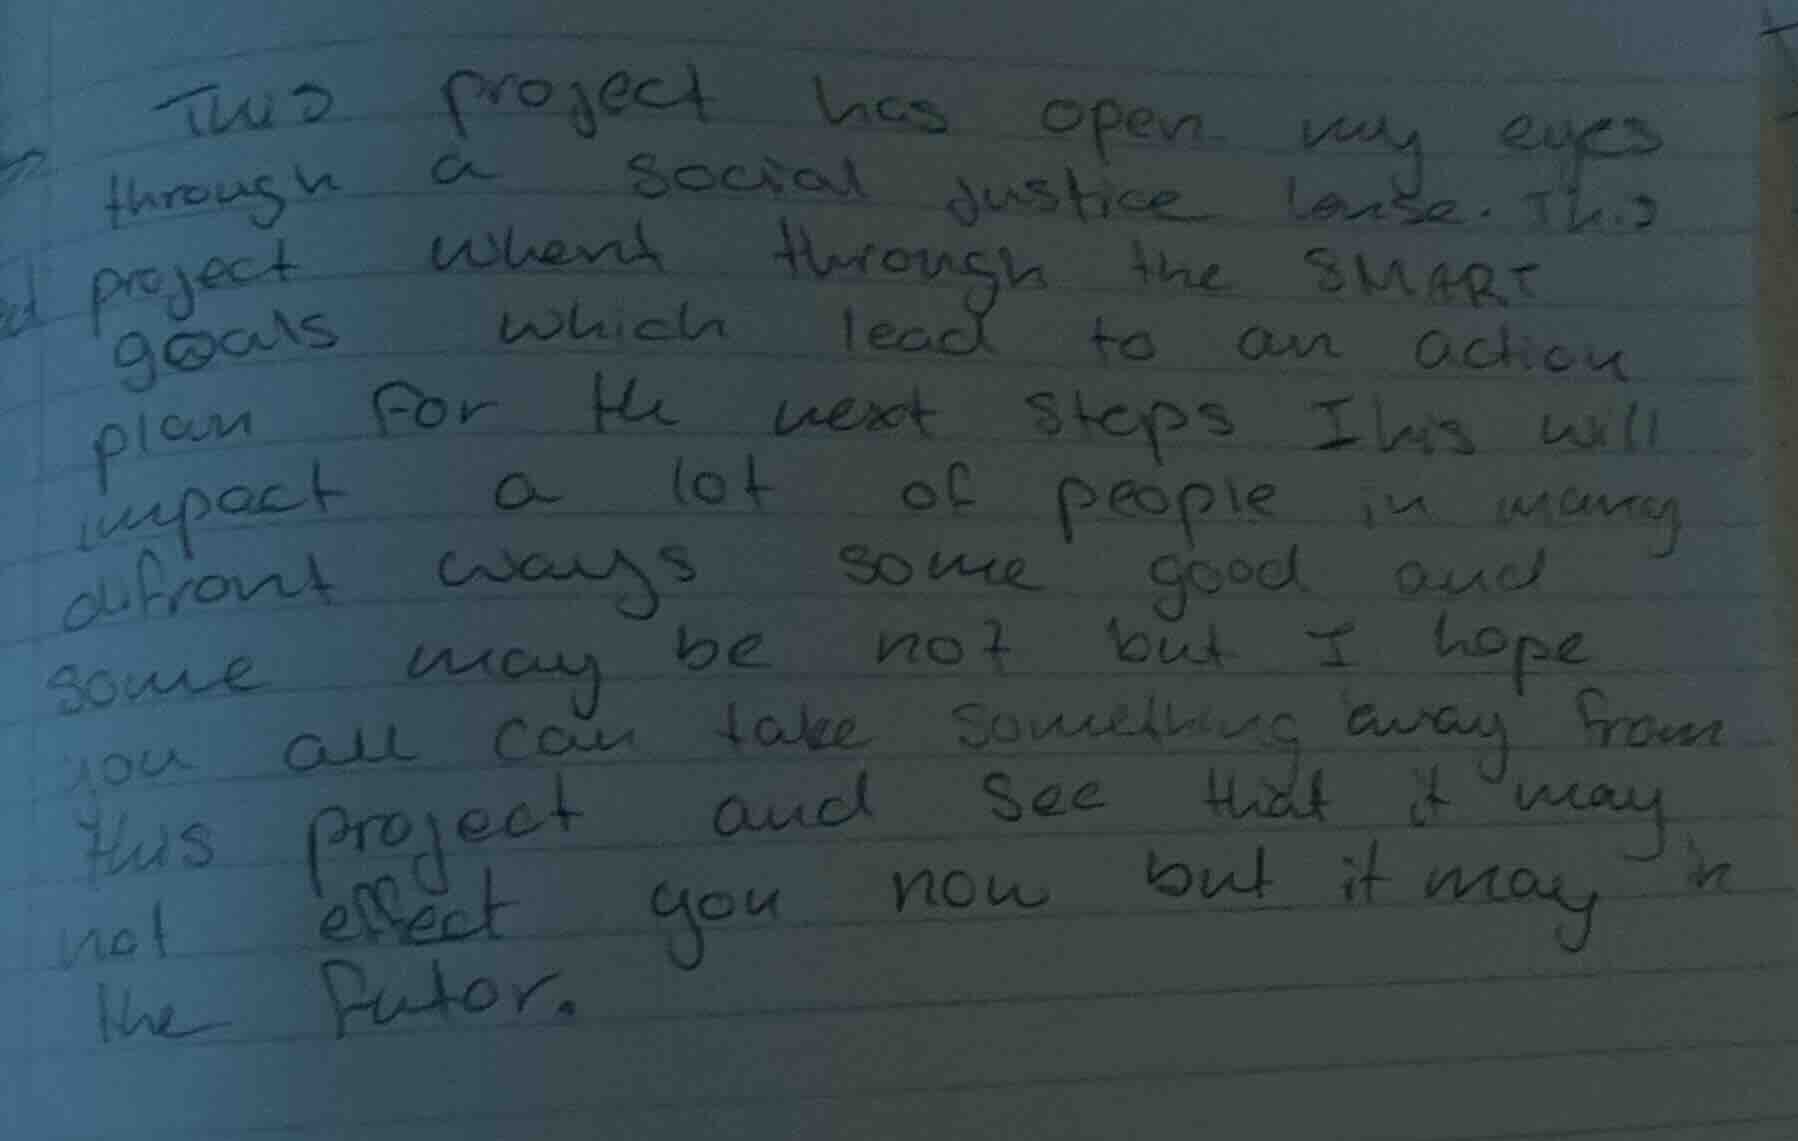 This project has open my eyes
through a social justice lense. This
project whent through the SMART
goals which lead to an action
plan for the next steps This will
impact a lot of people in many
difront ways some good and
some may be not but I hope
you all can take something away from
this project and see that it may
not effect you now but it may in
the futor.